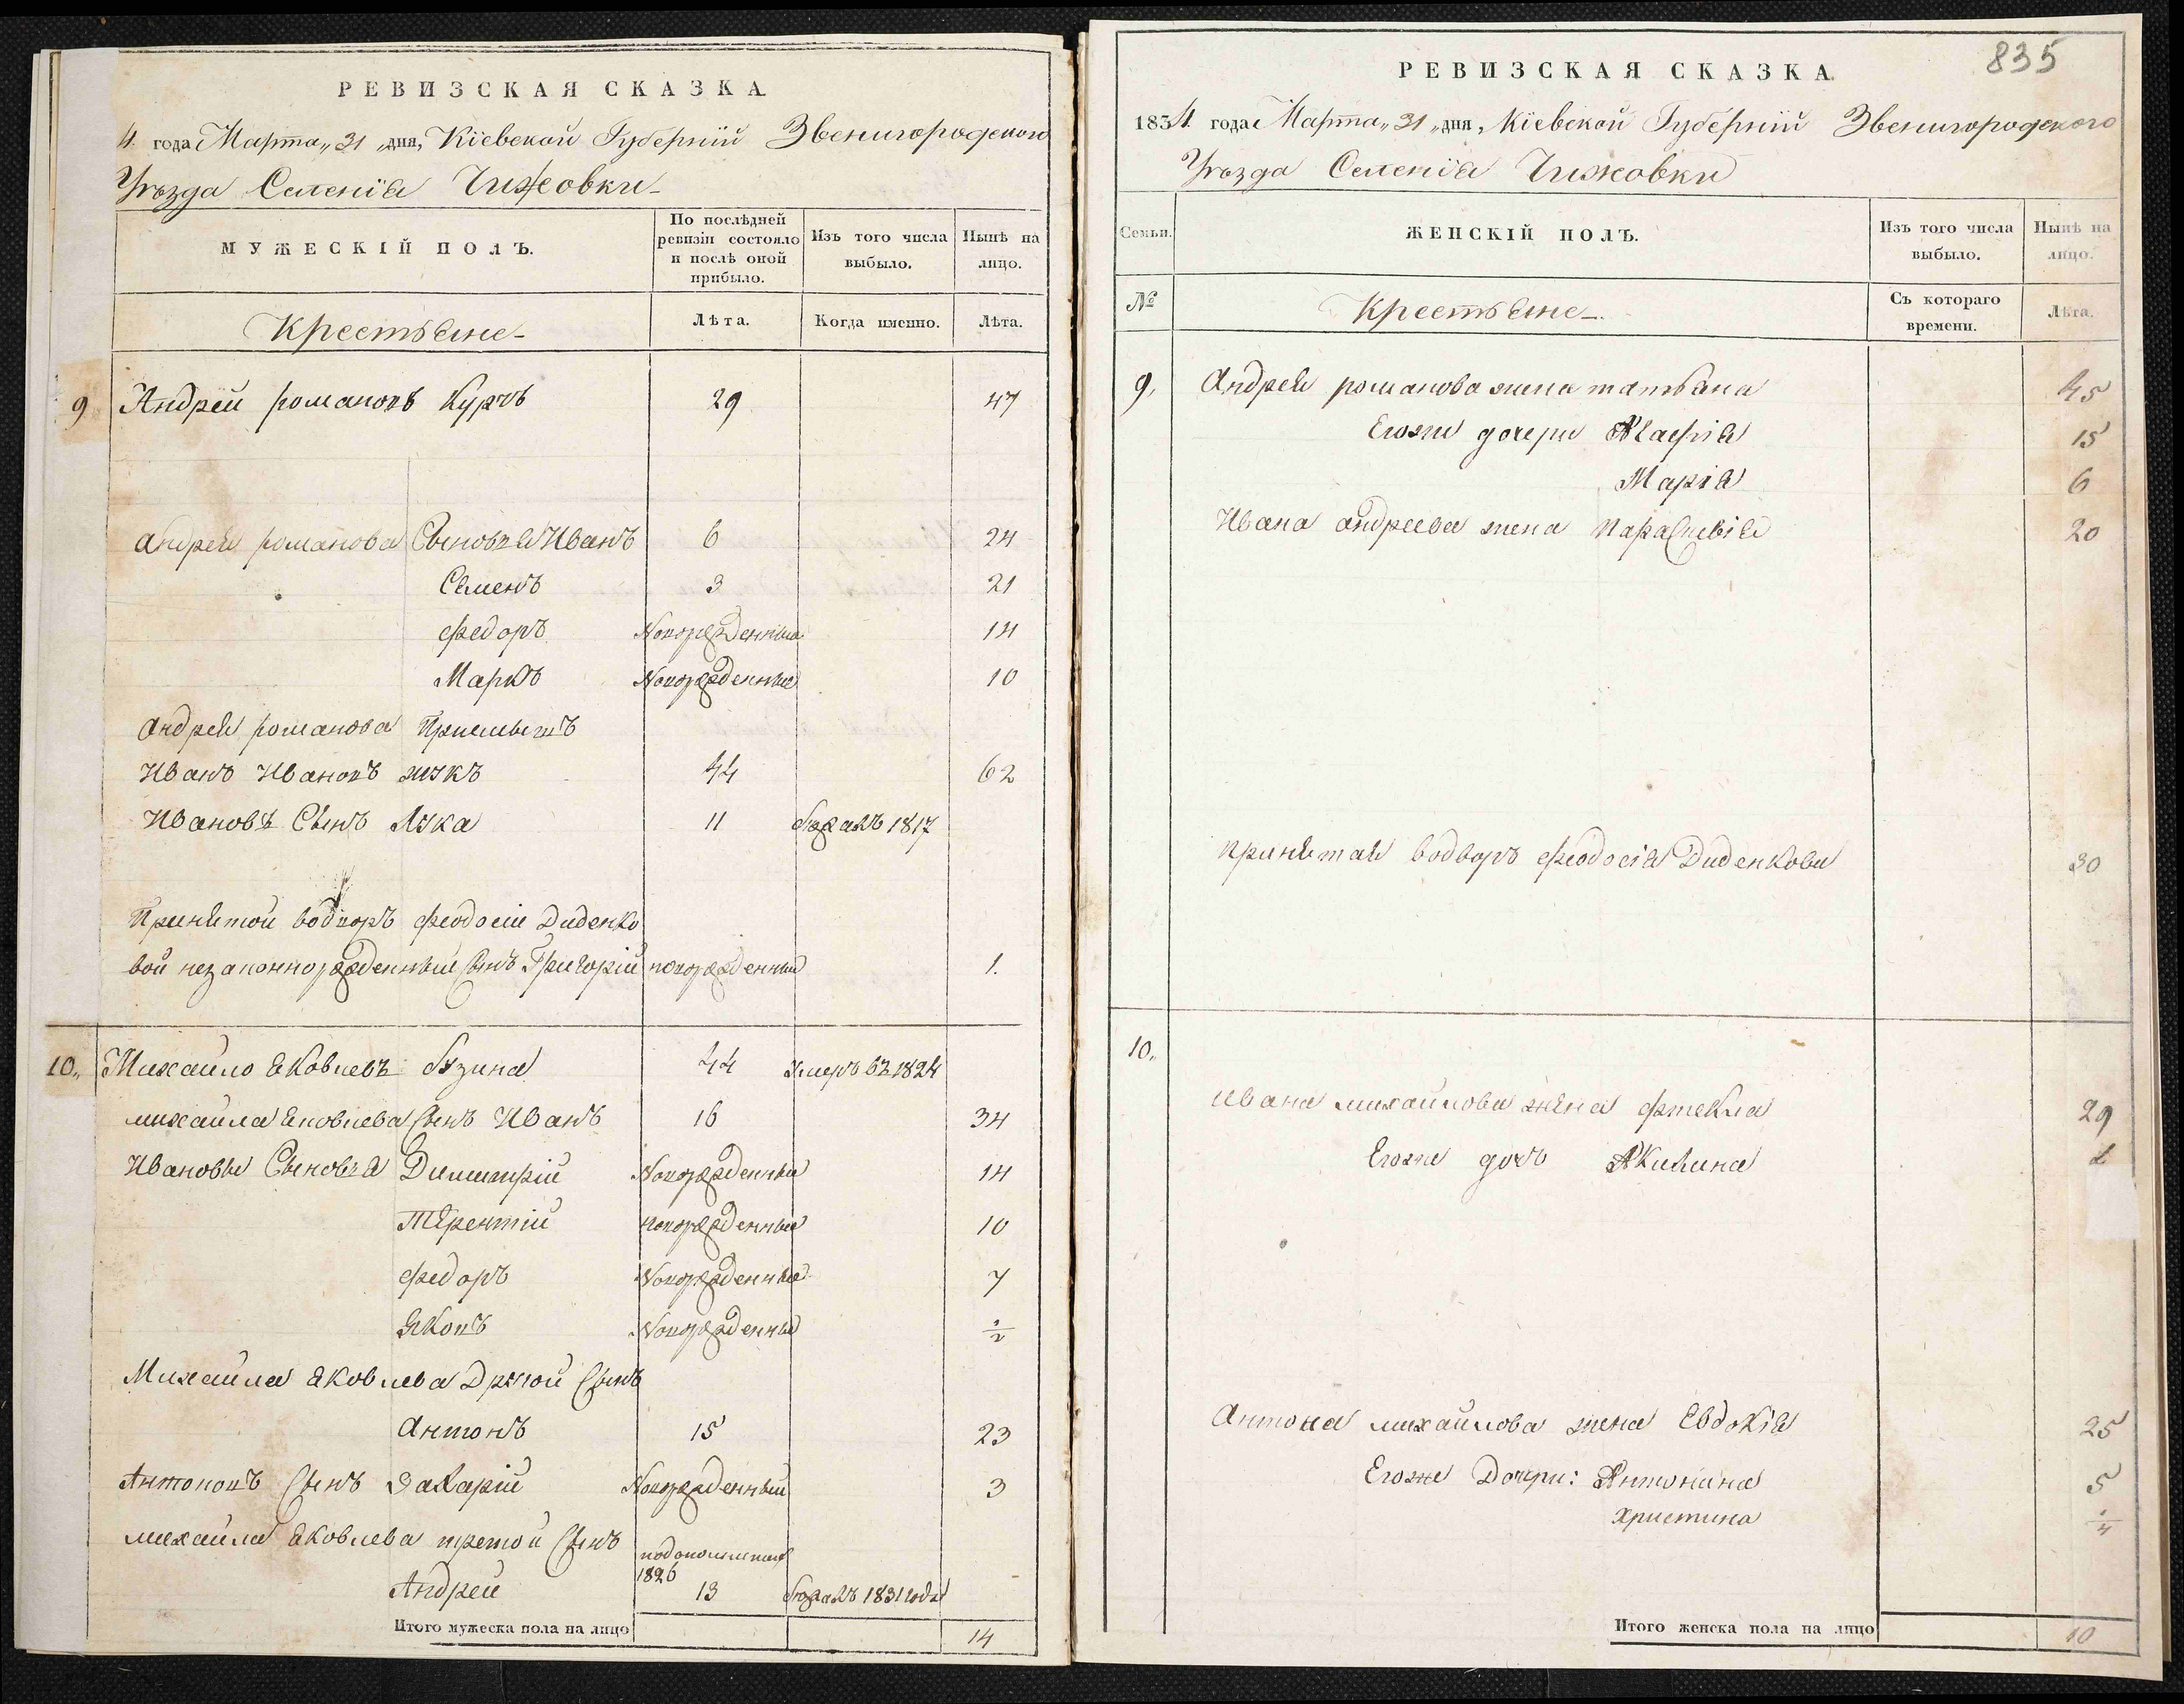 РЕВИЗСКАЯ СКАЗКА
4. года Марта „31 „дня, Кіевской Губерніи Звенигородского
Уѣзда Селенія Чижовки
МУЖЕСКІЙ ПОЛЪ.
По послѣдней ревизіи состояло и послѣ оной прибыло.
Изъ того числа выбыло.
Нынѣ на лицо.
Крестьяне
Лѣта.
Когда именно.
Лѣта.
9 Андрей романовъ 29 47
Андрея романова Сыновья Иванъ 6 24
Семенъ 3 21
федоръ Новорожденные 14
Маркъ Новорожденные 10
Андрея романова Приемышъ
Иванъ Ивановъ жукъ 44 62
Ивановъ Сынъ Лука 11 1817
Принятой водворъ феодосіи Диденко
вой незаконнорожденный сынъ Григорій новорожденный 1.
10„ Михайло Яковлевъ 44 умеръ въ 1824
михайла Яковлева Сынъ Иванъ 16 34
Ивановы Сыновья Димитрій Новорожденные 14
Терентій новорожденные 10
федоръ Новорожденные 7
Яковъ Новорожденные ½
Михайла Яковлева Другой Сынъ
Антонъ 15 23
Антоновъ Сынъ Захарій Новорожденный 3
михайла Яковлева третой Сынъ
1826
Андрей 13 1831 года
Итого мужеска пола на лицо 14
835
РЕВИЗСКАЯ СКАЗКА.
1834 года Марта „31 „дня, Кіевской Губерніи Звенигородского
Уѣзда Селенія Чижовки
Семьи.
ЖЕНСКІЙ ПОЛЪ.
Изъ того числа выбыло.
Нынѣ на лицо.
№
Крестьяне
Съ котораго времени.
Лѣта.
9, Андрея романова жена татьяна 45
Егоже дочери 15
Марія 6
Ивана андреева жена Параскевія 20
принятая водворъ феодосія Диденкова 30
10„
ивана михайлова жена 29
Егоже дочь Акилина
Антона михайлова жена Евдокія 25
Егоже Дочери: Антонина 5
христина ¼
Итого женска пола на лицо 10